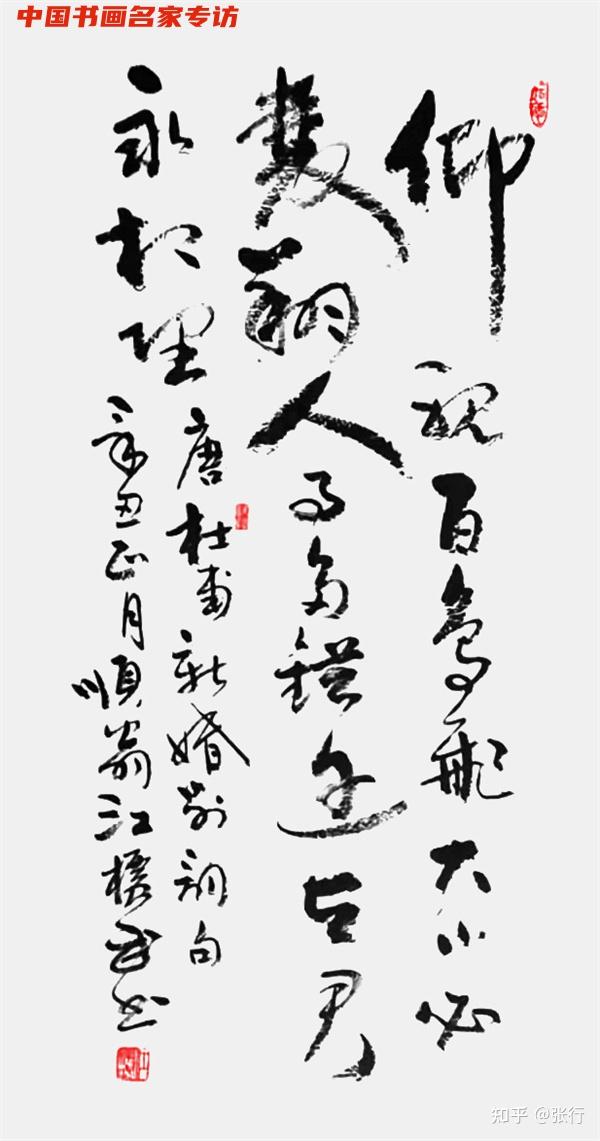 中国书画名家专访
仰視百鳥飛大小必
雙翔人事多錯迕与君
永相望
唐杜甫新婚别詞句
辛丑正月順翁江武书
知乎 @张行